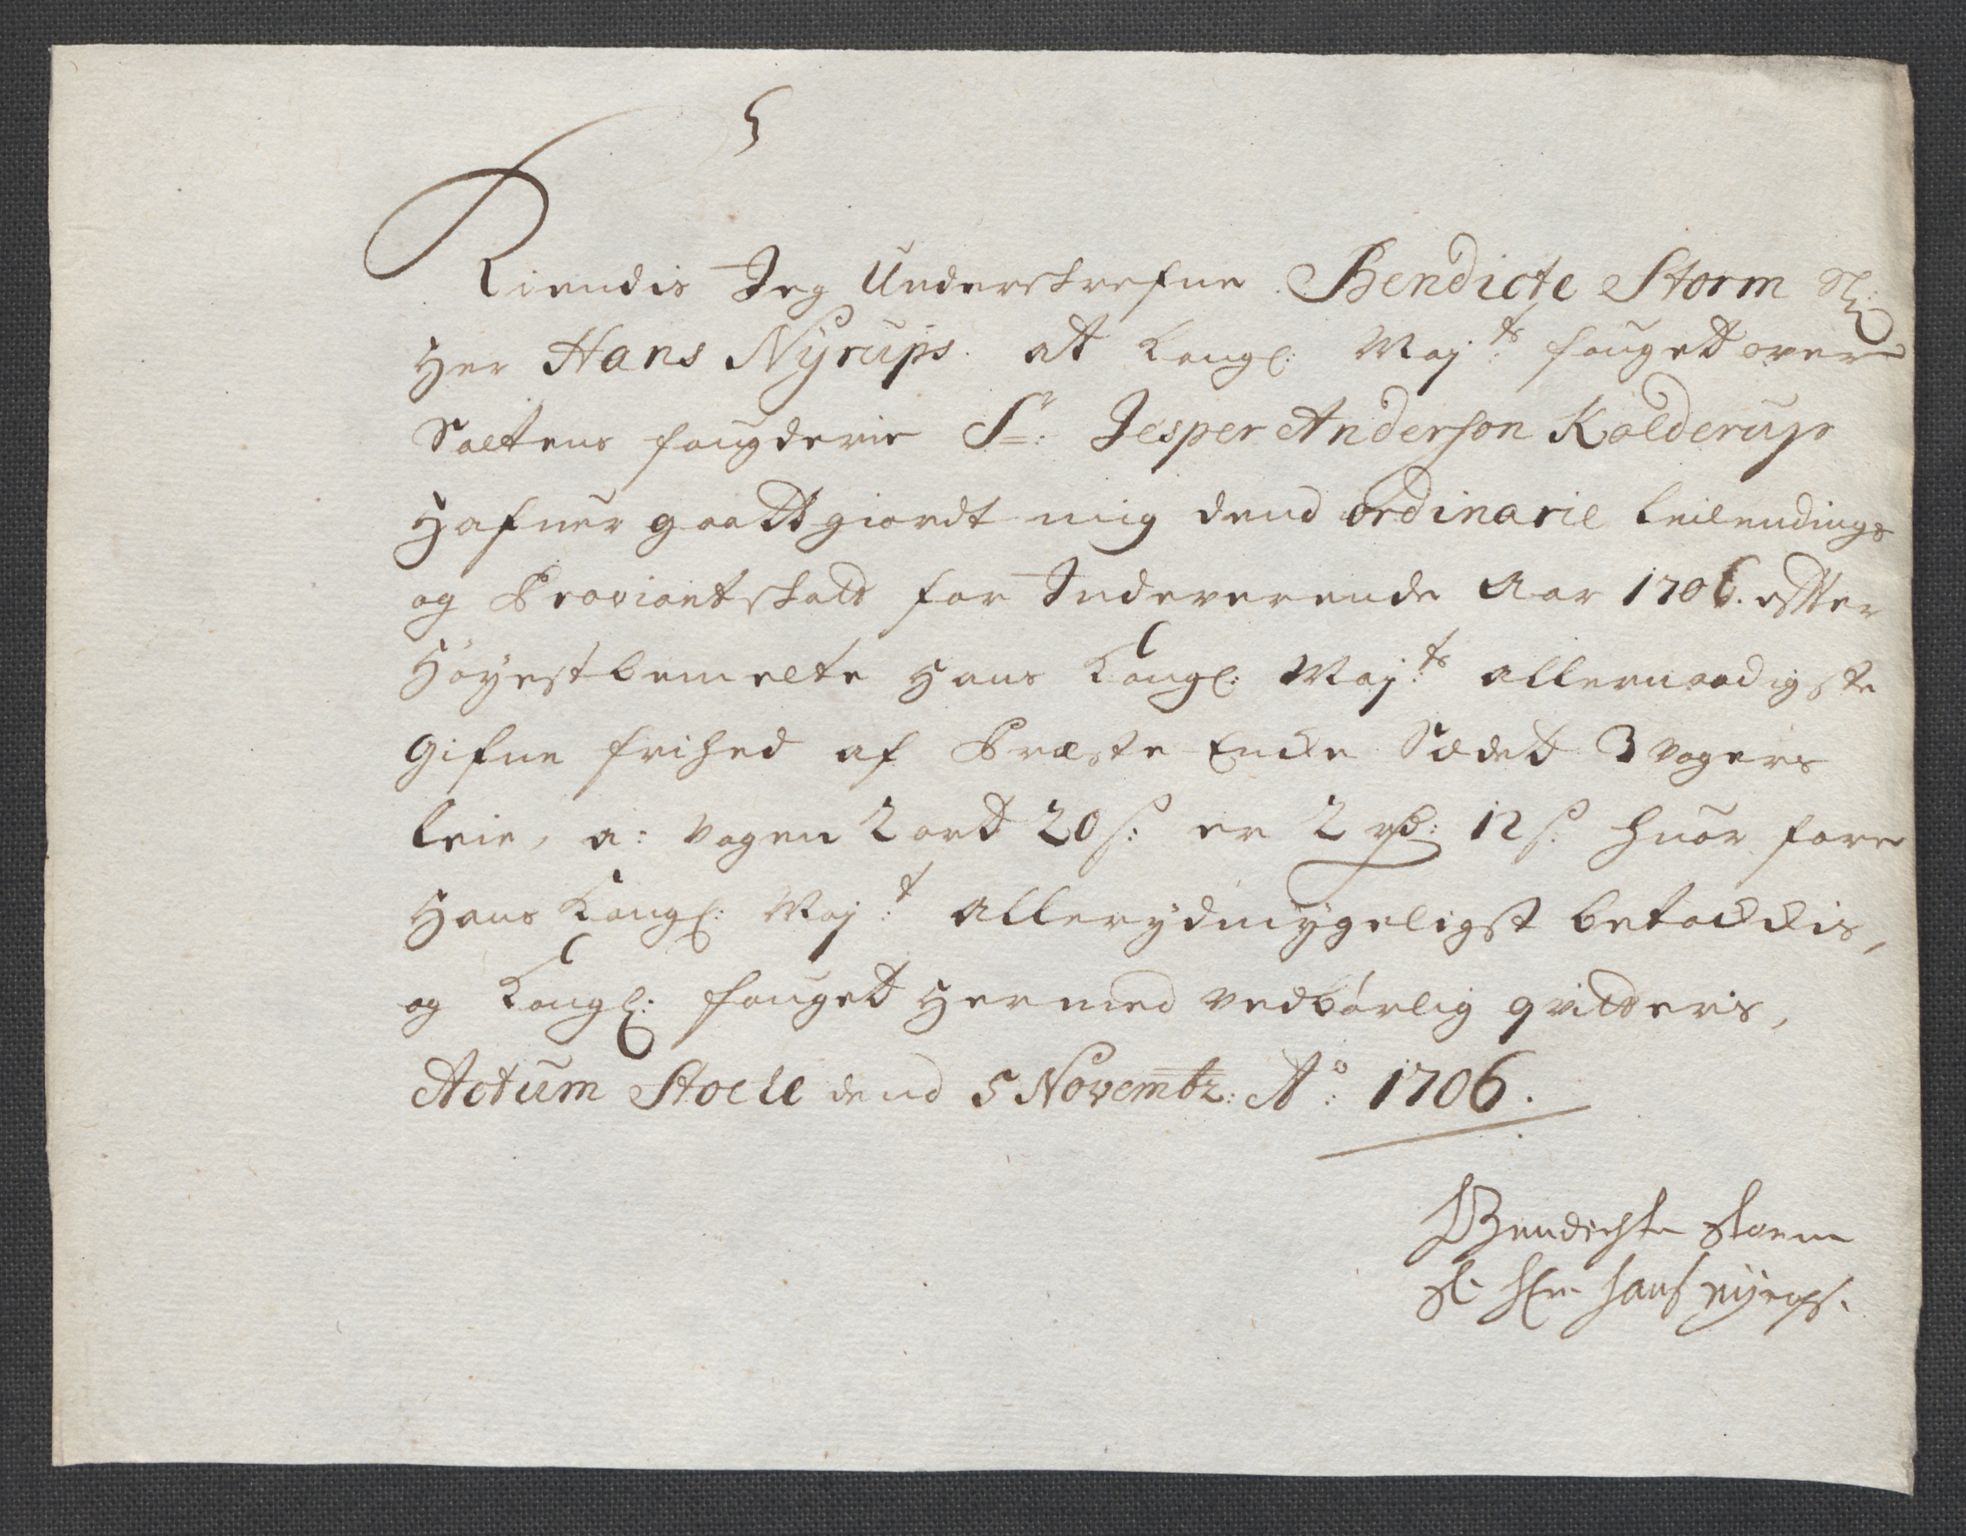 Kiendis Jeg Underskrefne Bendicte Storm Sl:
Her Hans Nyrups at Kongl: Maj:ts fougett over
Saltens fougderie Sr: Jesper Anderson Kolderup
Hafuer gaattgiordt mig dend ordinarie leilendings
og Proviantskatt for Indeverende Aar 1706. effter
Höyestbemelte Hans Kongl: Maj:ts allernaadigste
Gifne frihed af Præste Encke Sædett 3 vogers
leie, a: vogen 2 ortt 20 s: er 2 rd: 12 s: huor fore
Hans Kongl: Maj:t allerydmygeligst betackis,
og Kongl: fougett Hermed vedbörlig qvitteris,
Actum Stoele dend 5 Novembr: Ao: 1706.
Bendichte Storm
Sl. Hr. Hans Nyrops.